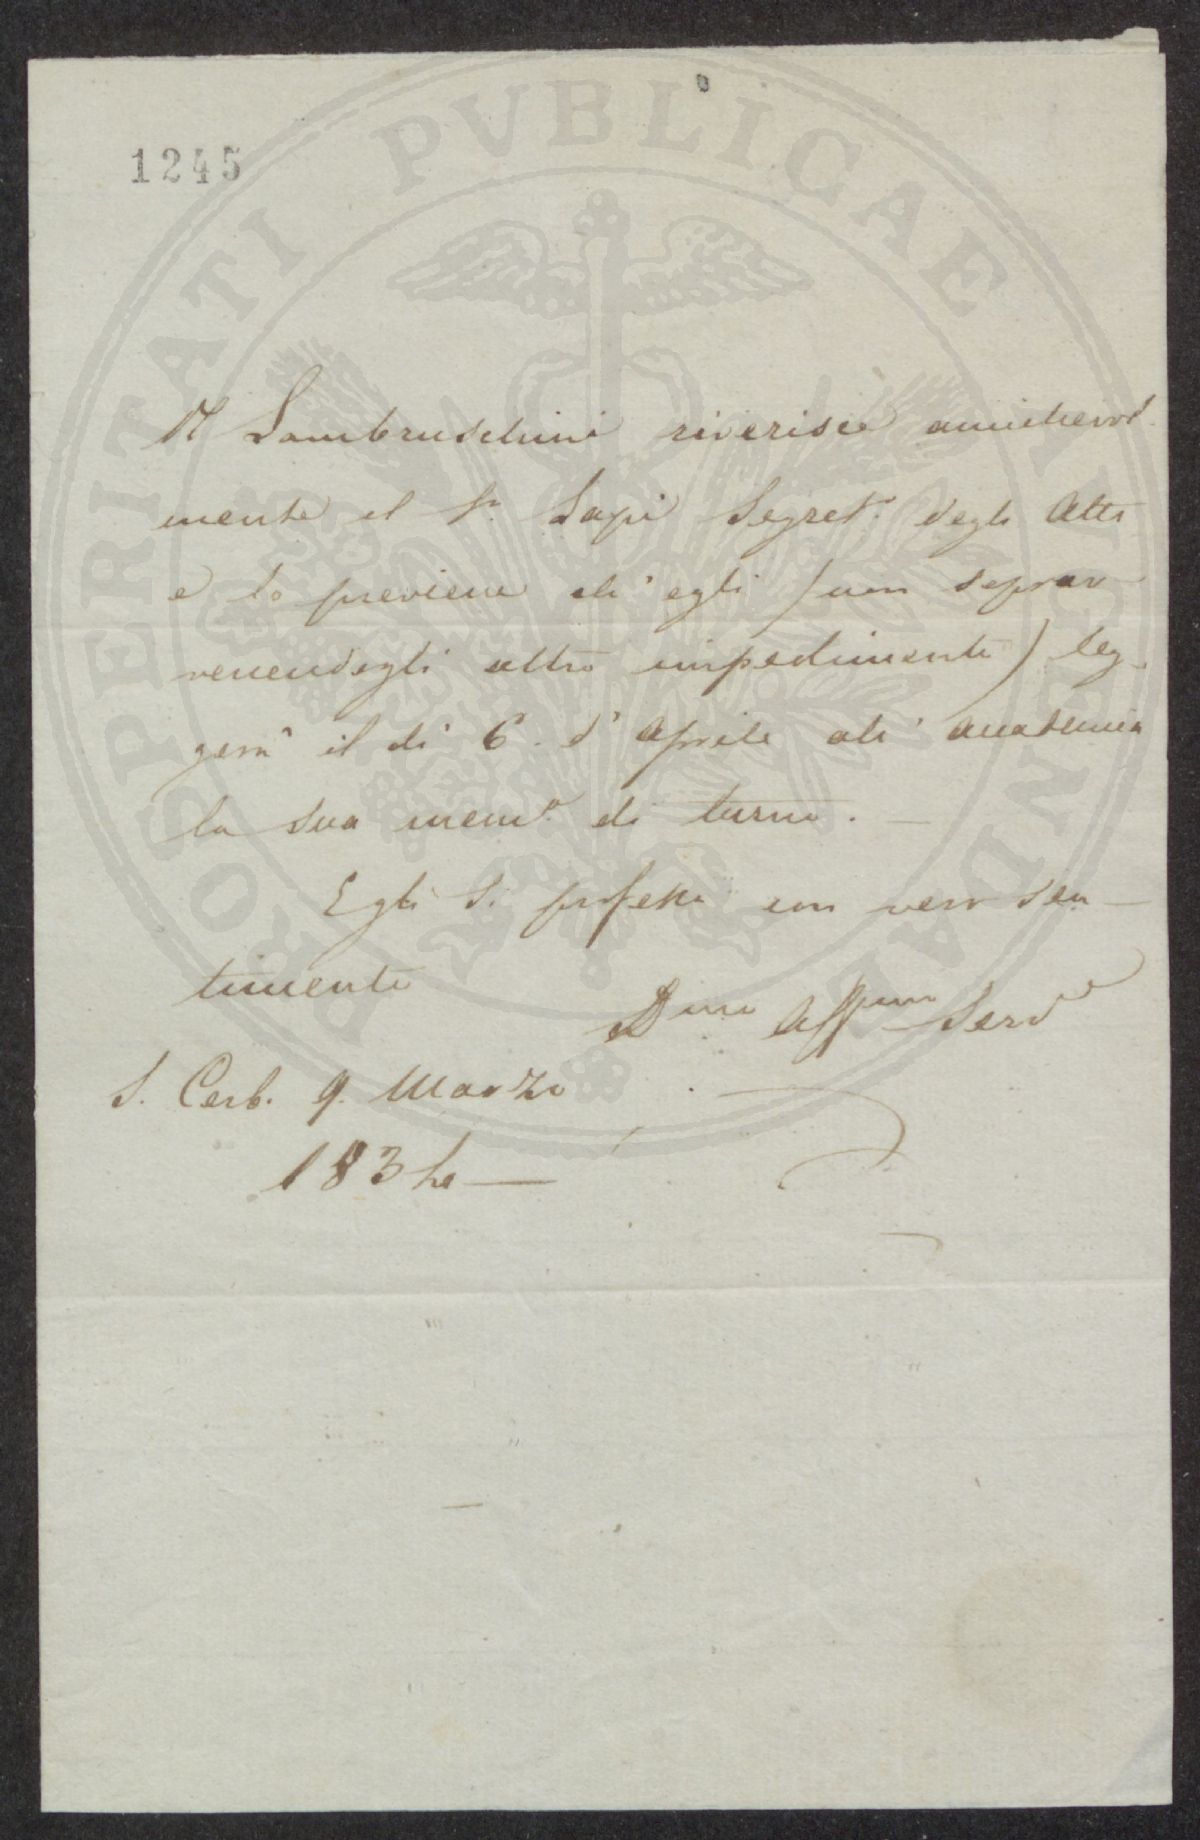 1245
PROSPERITATI PVBLICAE AVGENDAE
Il Lambruschini riverisce amichevol-
mente il Sr. Lapi Segret.o degli Atti
e lo previene ch'egli (non soprav-
venendogli altro impedimento) leg-
gerà il dì 6. d'Aprile all'Accademia
la sua mem.a di turno. —
Egli si professa con vero sen-
timento
Dmo Affmo Servo
S. Cerb. 9. Marzo
1834 —